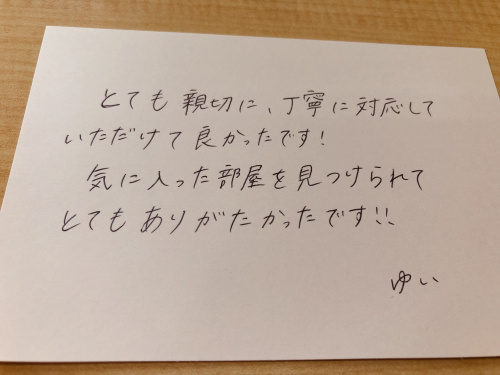 とても親切に、丁寧に対応して
いただけて良かったです!
気に入った部屋を見つけられて
とてもありがたかったです!!
ゆい